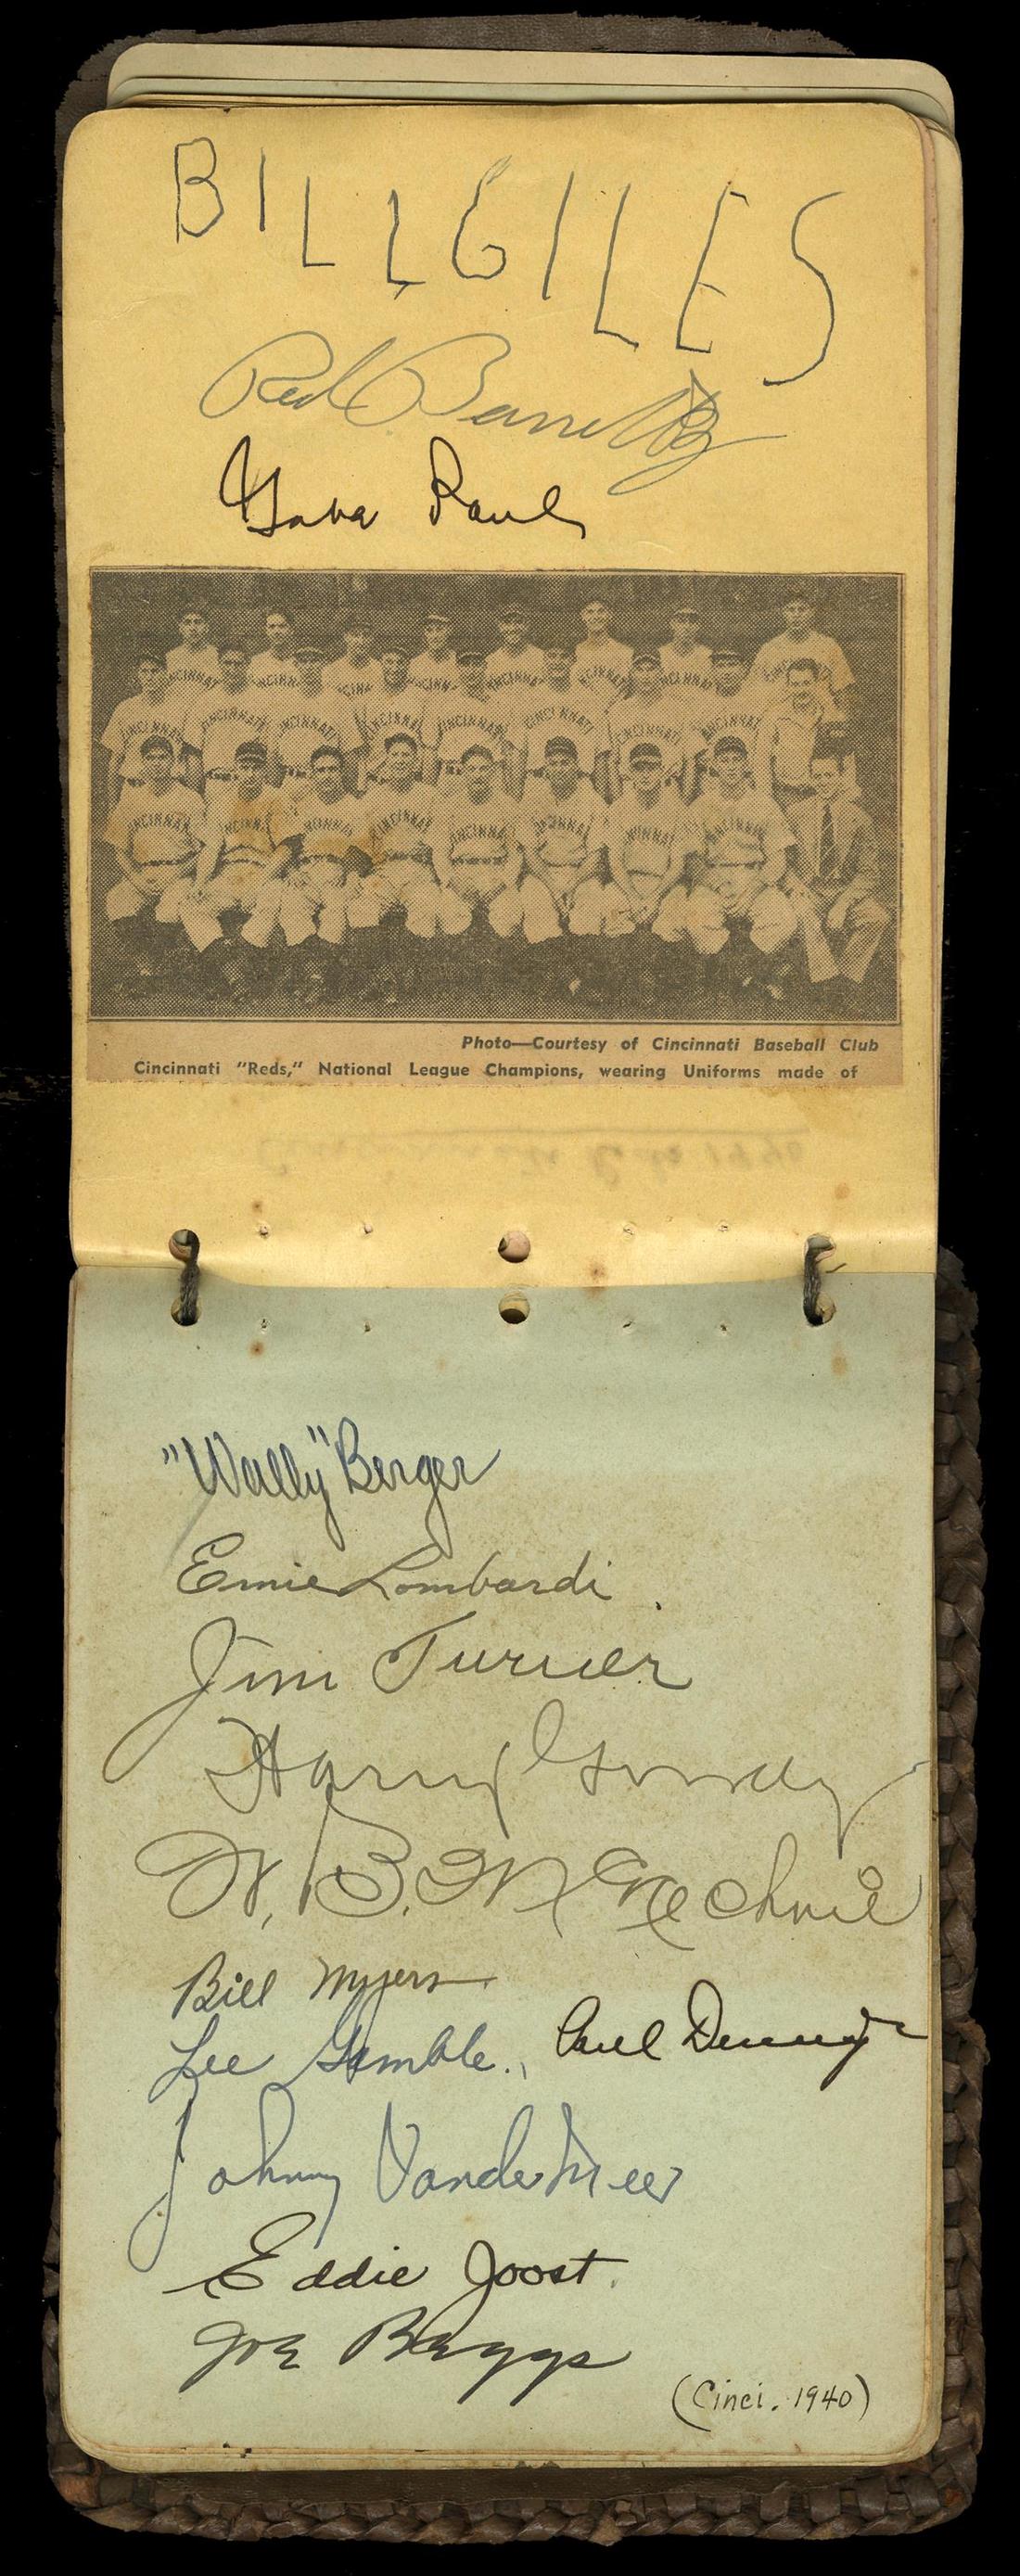 BILL GILES
Red Barrett
Gabe Paul
Photo—Courtesy of Cincinnati Baseball Club
Cincinnati "Reds," National League Champions, wearing Uniforms made of
"Wally" Berger
Ernie Lombardi
Jim Turner
Harry
W. B. McKechnie
Bill Myers
Lee Gamble. Paul Derringer
Johnny VanderMeer
Eddie Joost.
Joe Beggs
(Cinci. 1940)